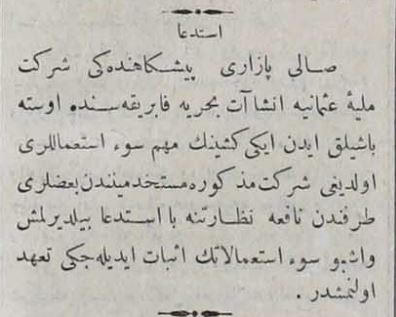 استدعا
صالی پازاری پیشكاهنده‌كی شركت
ملیهٔ عثمانیه انشاآت بحریه فابریقه‌سنده اوسته
باشیلق ایدن ایكی كشینك مهم سوء استعماللری
اولدیغی شركت مذكوره مستخدمیندن بعضلری
طرفندن نافعه نظارتنه با استدعا بیلدیرلمش
واشبو سوء استعمالاتك اثبات ایدیله‌جكی تعهد
اولنمشدر .